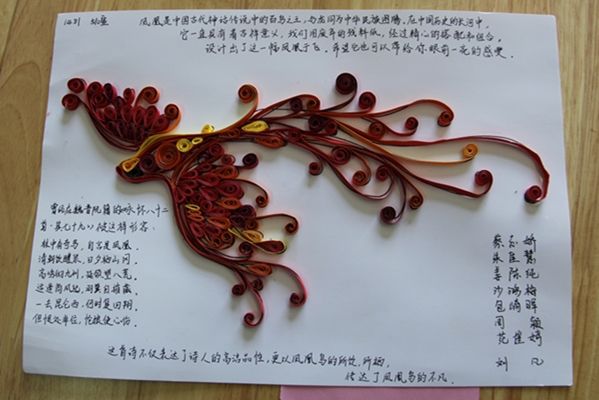 凤凰是中国古代神话传说中的百鸟之王,与龙同为中华民族图腾,在中国历史的长河中,
它一直具有着吉祥意义,我们用废弃的残料纸,经过精心的搭配和组合,
设计出了这一幅凤凰于飞。希望它也可以带给你眼前一亮的感受.
在魏晋阮籍的咏怀八十二
首·其七十九》 这样形容:
林中有奇鸟,自言是凤凰。
清朝饮醴泉,日夕栖山冈。
高鸣彻九州,延颈望八荒。
适逢商风起,羽翼自摧藏。
一去昆仑西,何时复回翔。
但恨处非位,怆悢使心伤。
蔡玉娇
朱佳慧
姜陈纯
沙鸿梅
包 晖
周 颖
范崔
刘 凡
这首诗不仅表达了诗人的高洁品性,更以凤凰鸟的所饮、所栖,
达了凤凰鸟的不凡.